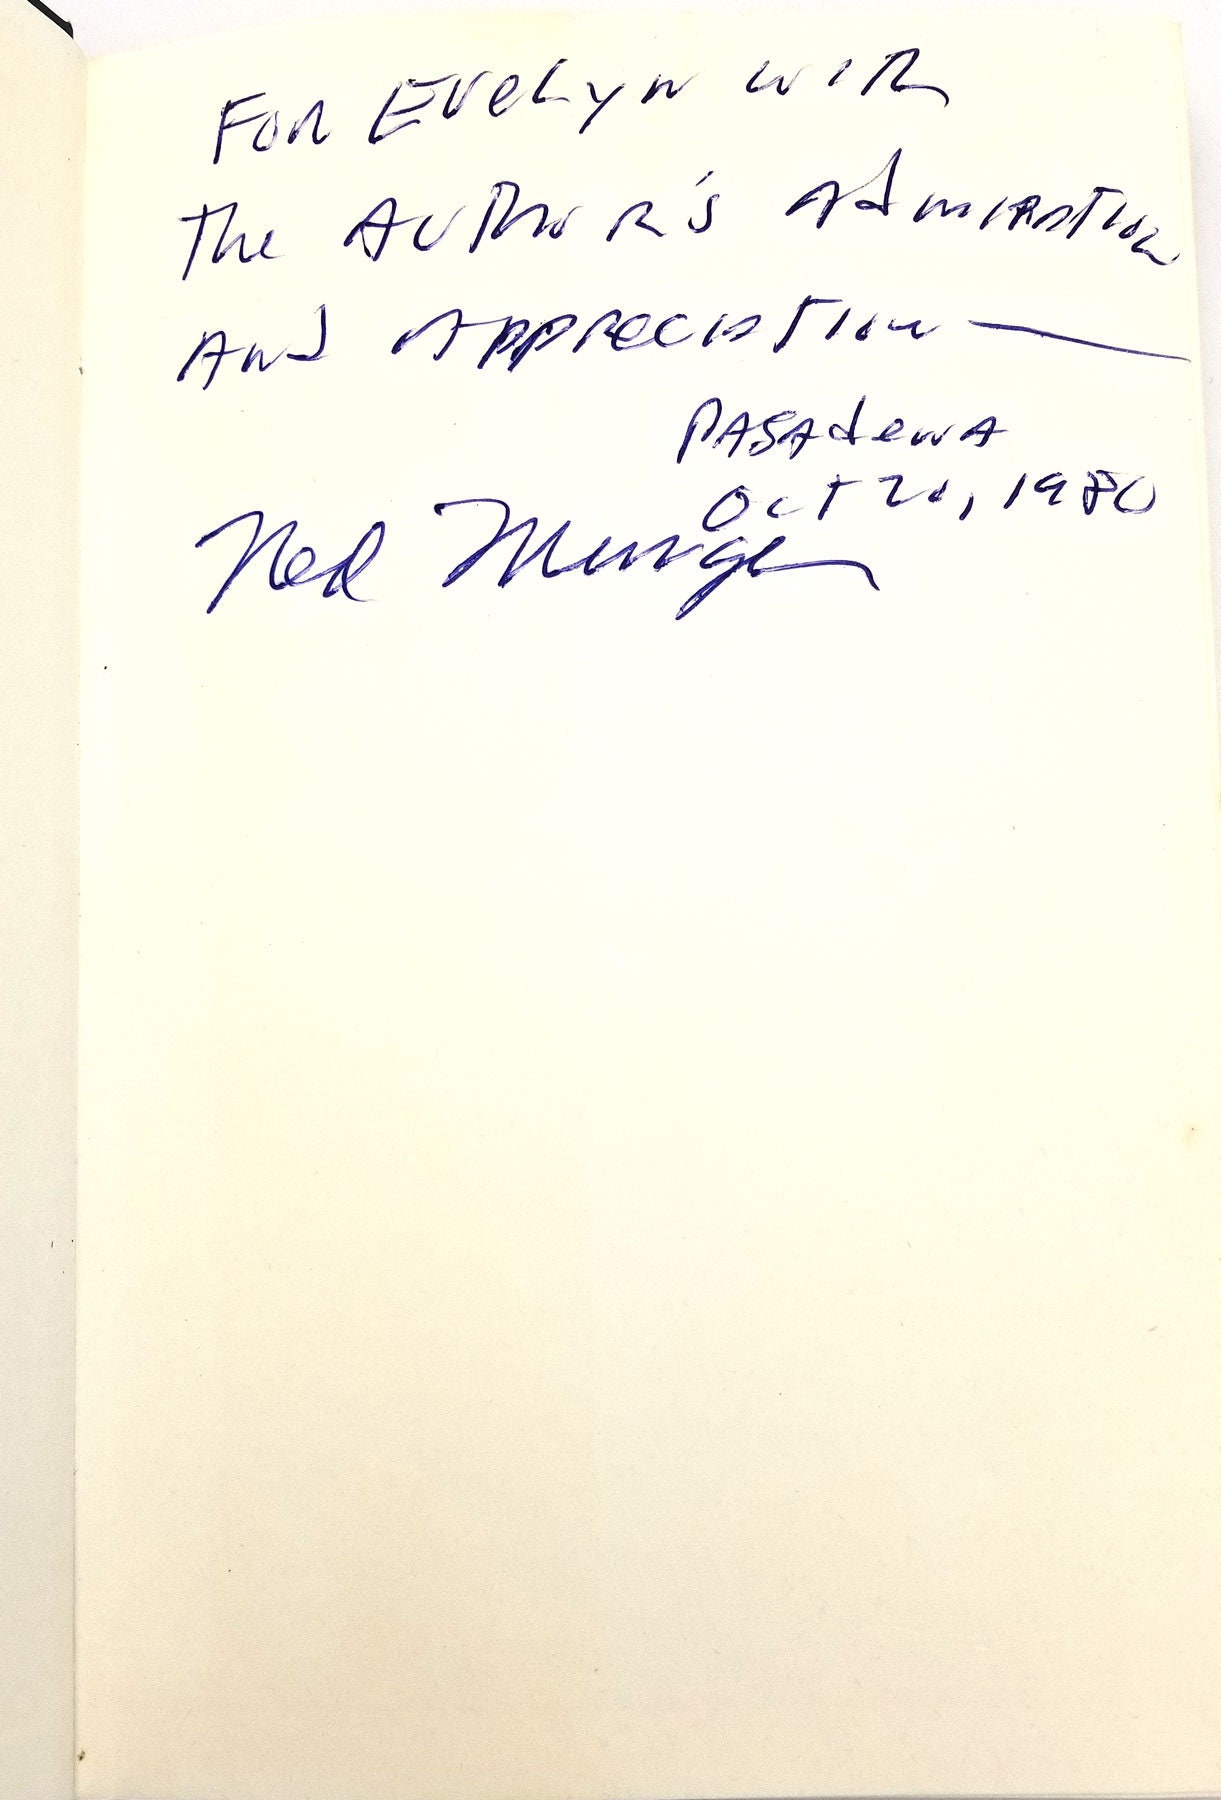 For Evelyn with
The Author's Admiration
And Appreciation —
Pasadena
Oct 20, 1980
Ned Munger